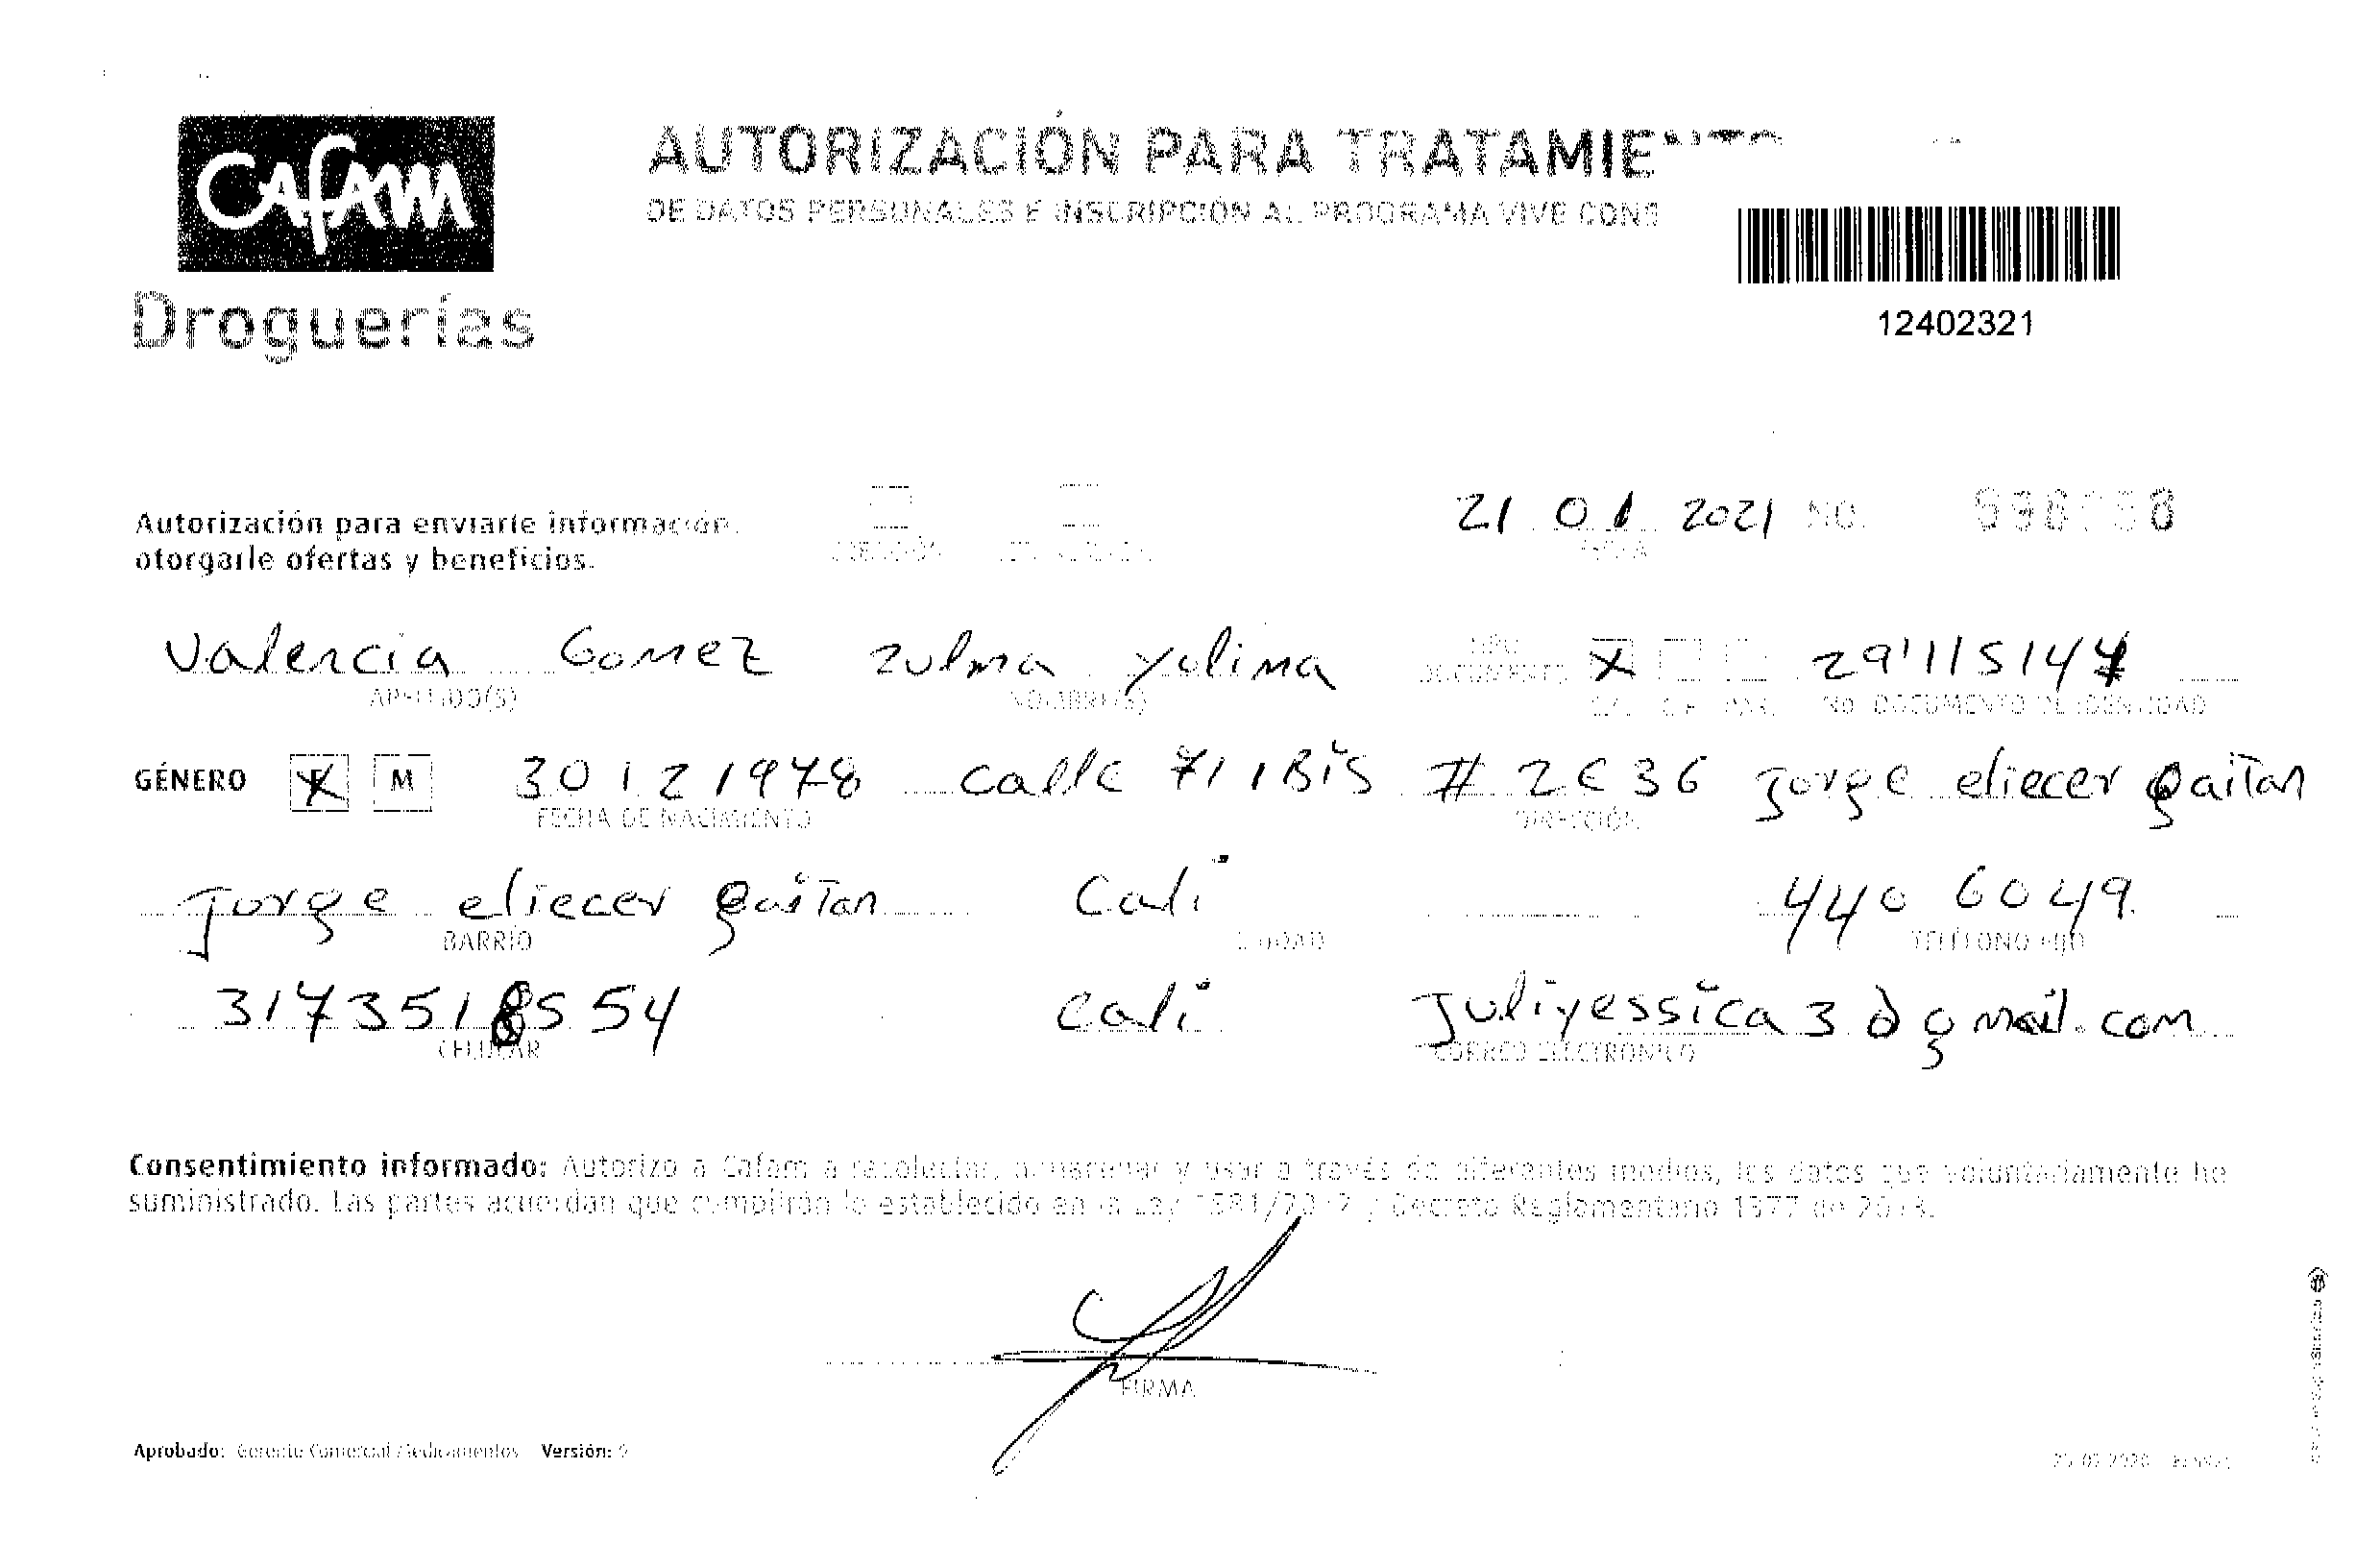 Cafam
Droguerías
AUTORIZACIÓN PARA TRATAMIENTO
DE DATOS PERSONALES E INSCRIPCIÓN AL PROGRAMA VIVE CONS
12402321
Autorización para enviarle información,
otorgarle ofertas y beneficios.
21 01 2021 NO.
FECHA
Valencia Gomez zulma yulima TIPO DOCUMENTO X 29'115147
APELLIDO(S) NOMBRE(S) C.C. C.E. PAS. NO. DOCUMENTO DE IDENTIDAD
GÉNERO F M 30 12 1978 calle 71 1Bis # 2E 36 Jorge eliecer gaitan
FECHA DE NACIMIENTO DIRECCIÓN
Jorge eliecer gaitan Cali 440 6049
BARRIO CIUDAD TELÉFONO FIJO
3173518554 cali Juliyessica3@gmail.com
CELULAR CORREO ELECTRÓNICO
Consentimiento informado: Autorizo a Cafam a recolectar, almacenar y usar a través de diferentes medios, los datos que voluntariamente he
suministrado. Las partes acuerdan que cumplirán lo establecido en la Ley 1581/2012 y Decreto Reglamentario 1377 de 2013.
FIRMA
Aprobado: Gerente Comercial Medicamentos Versión: 9